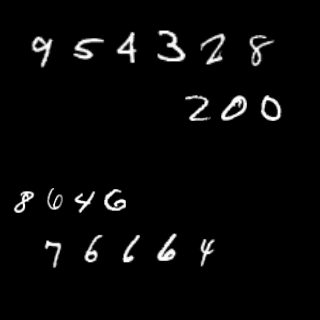 954328
200
8646
76664